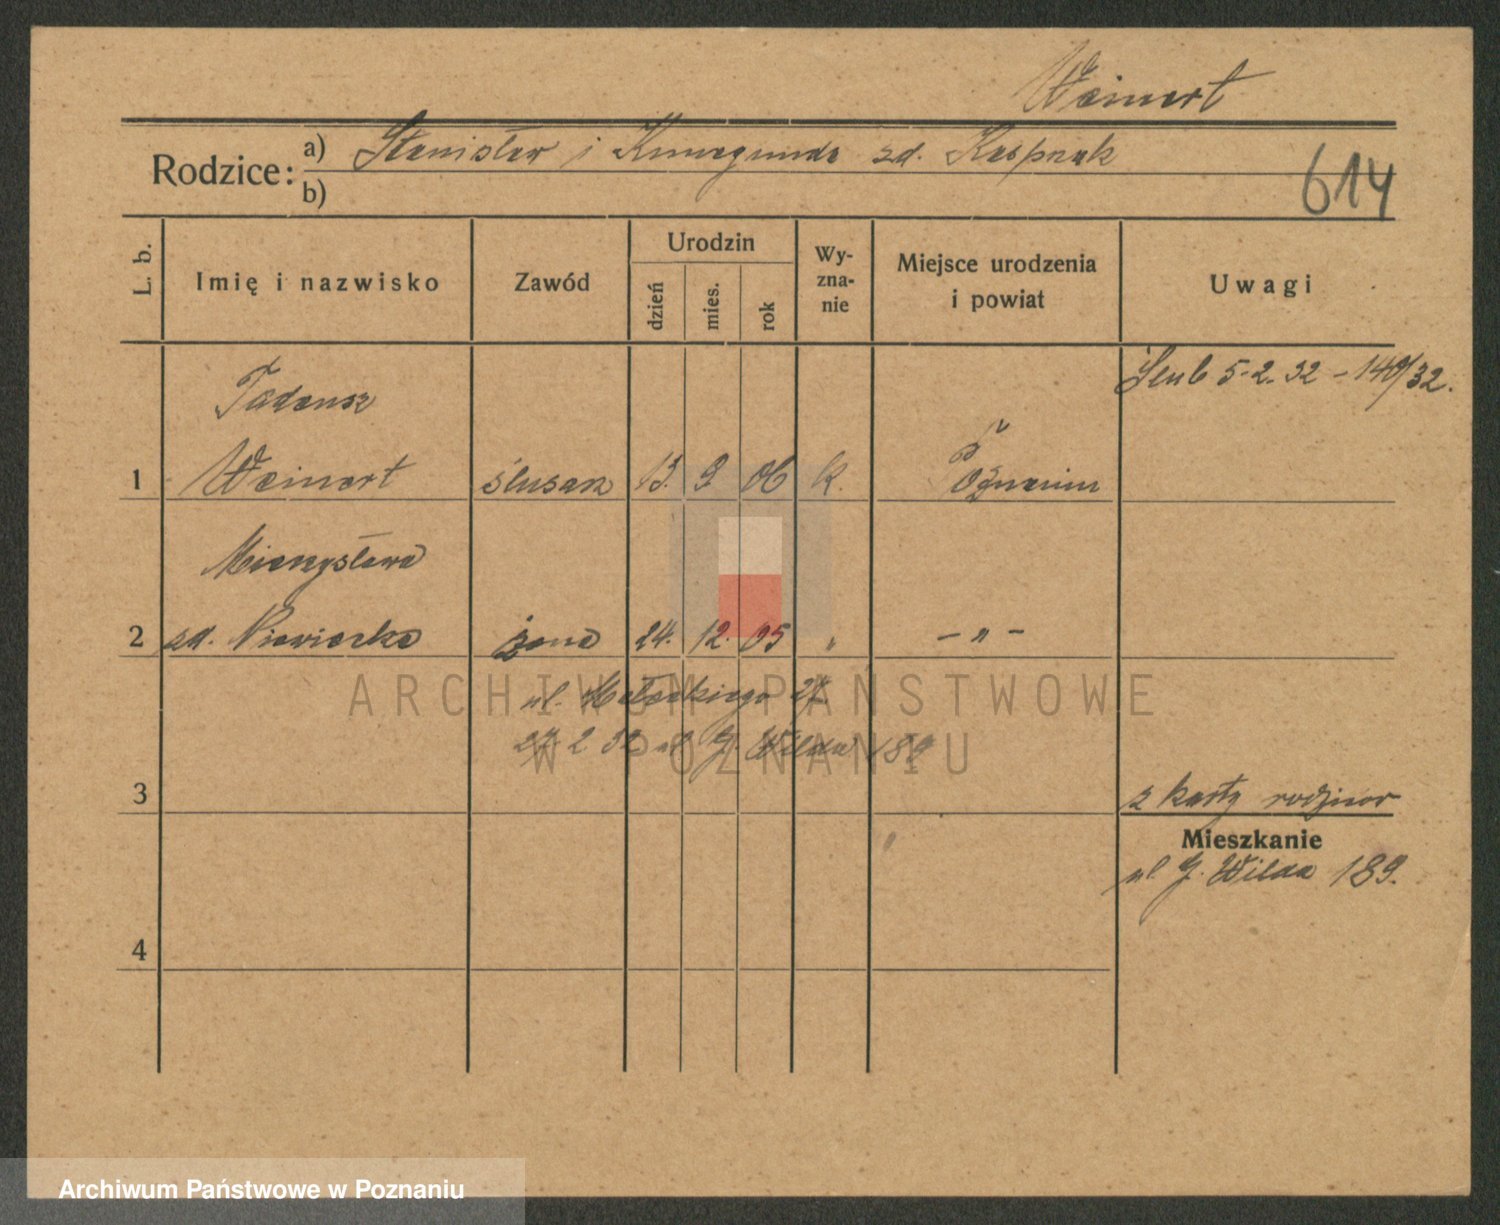 Weinert
Rodzice: a) Stanisław i Kunegunda zd. Kasprzak
b)
614
L. b.
Imię i nazwisko
Zawód
Urodzin
dzień
mies.
rok
Wy-
zna-
nie
Miejsce urodzenia
i powiat
Uwagi
Ślub 5-2-32 - 149/32.
Tadeusz
1 Weinert ślusarz 13. 9. 06 k. Poznaniu
Mieczysława
2 zd. Niewiorka żona 24. 12. 05 „ - „ -
ul. Małeckiego 27.
27. 2 32 ul G. Wilda 189
ARCHIWUM PAŃSTWOWE
W POZNANIU
3
z karty rodzinnej
Mieszkanie
ul G. Wilda 189.
4
Archiwum Państwowe w Poznaniu